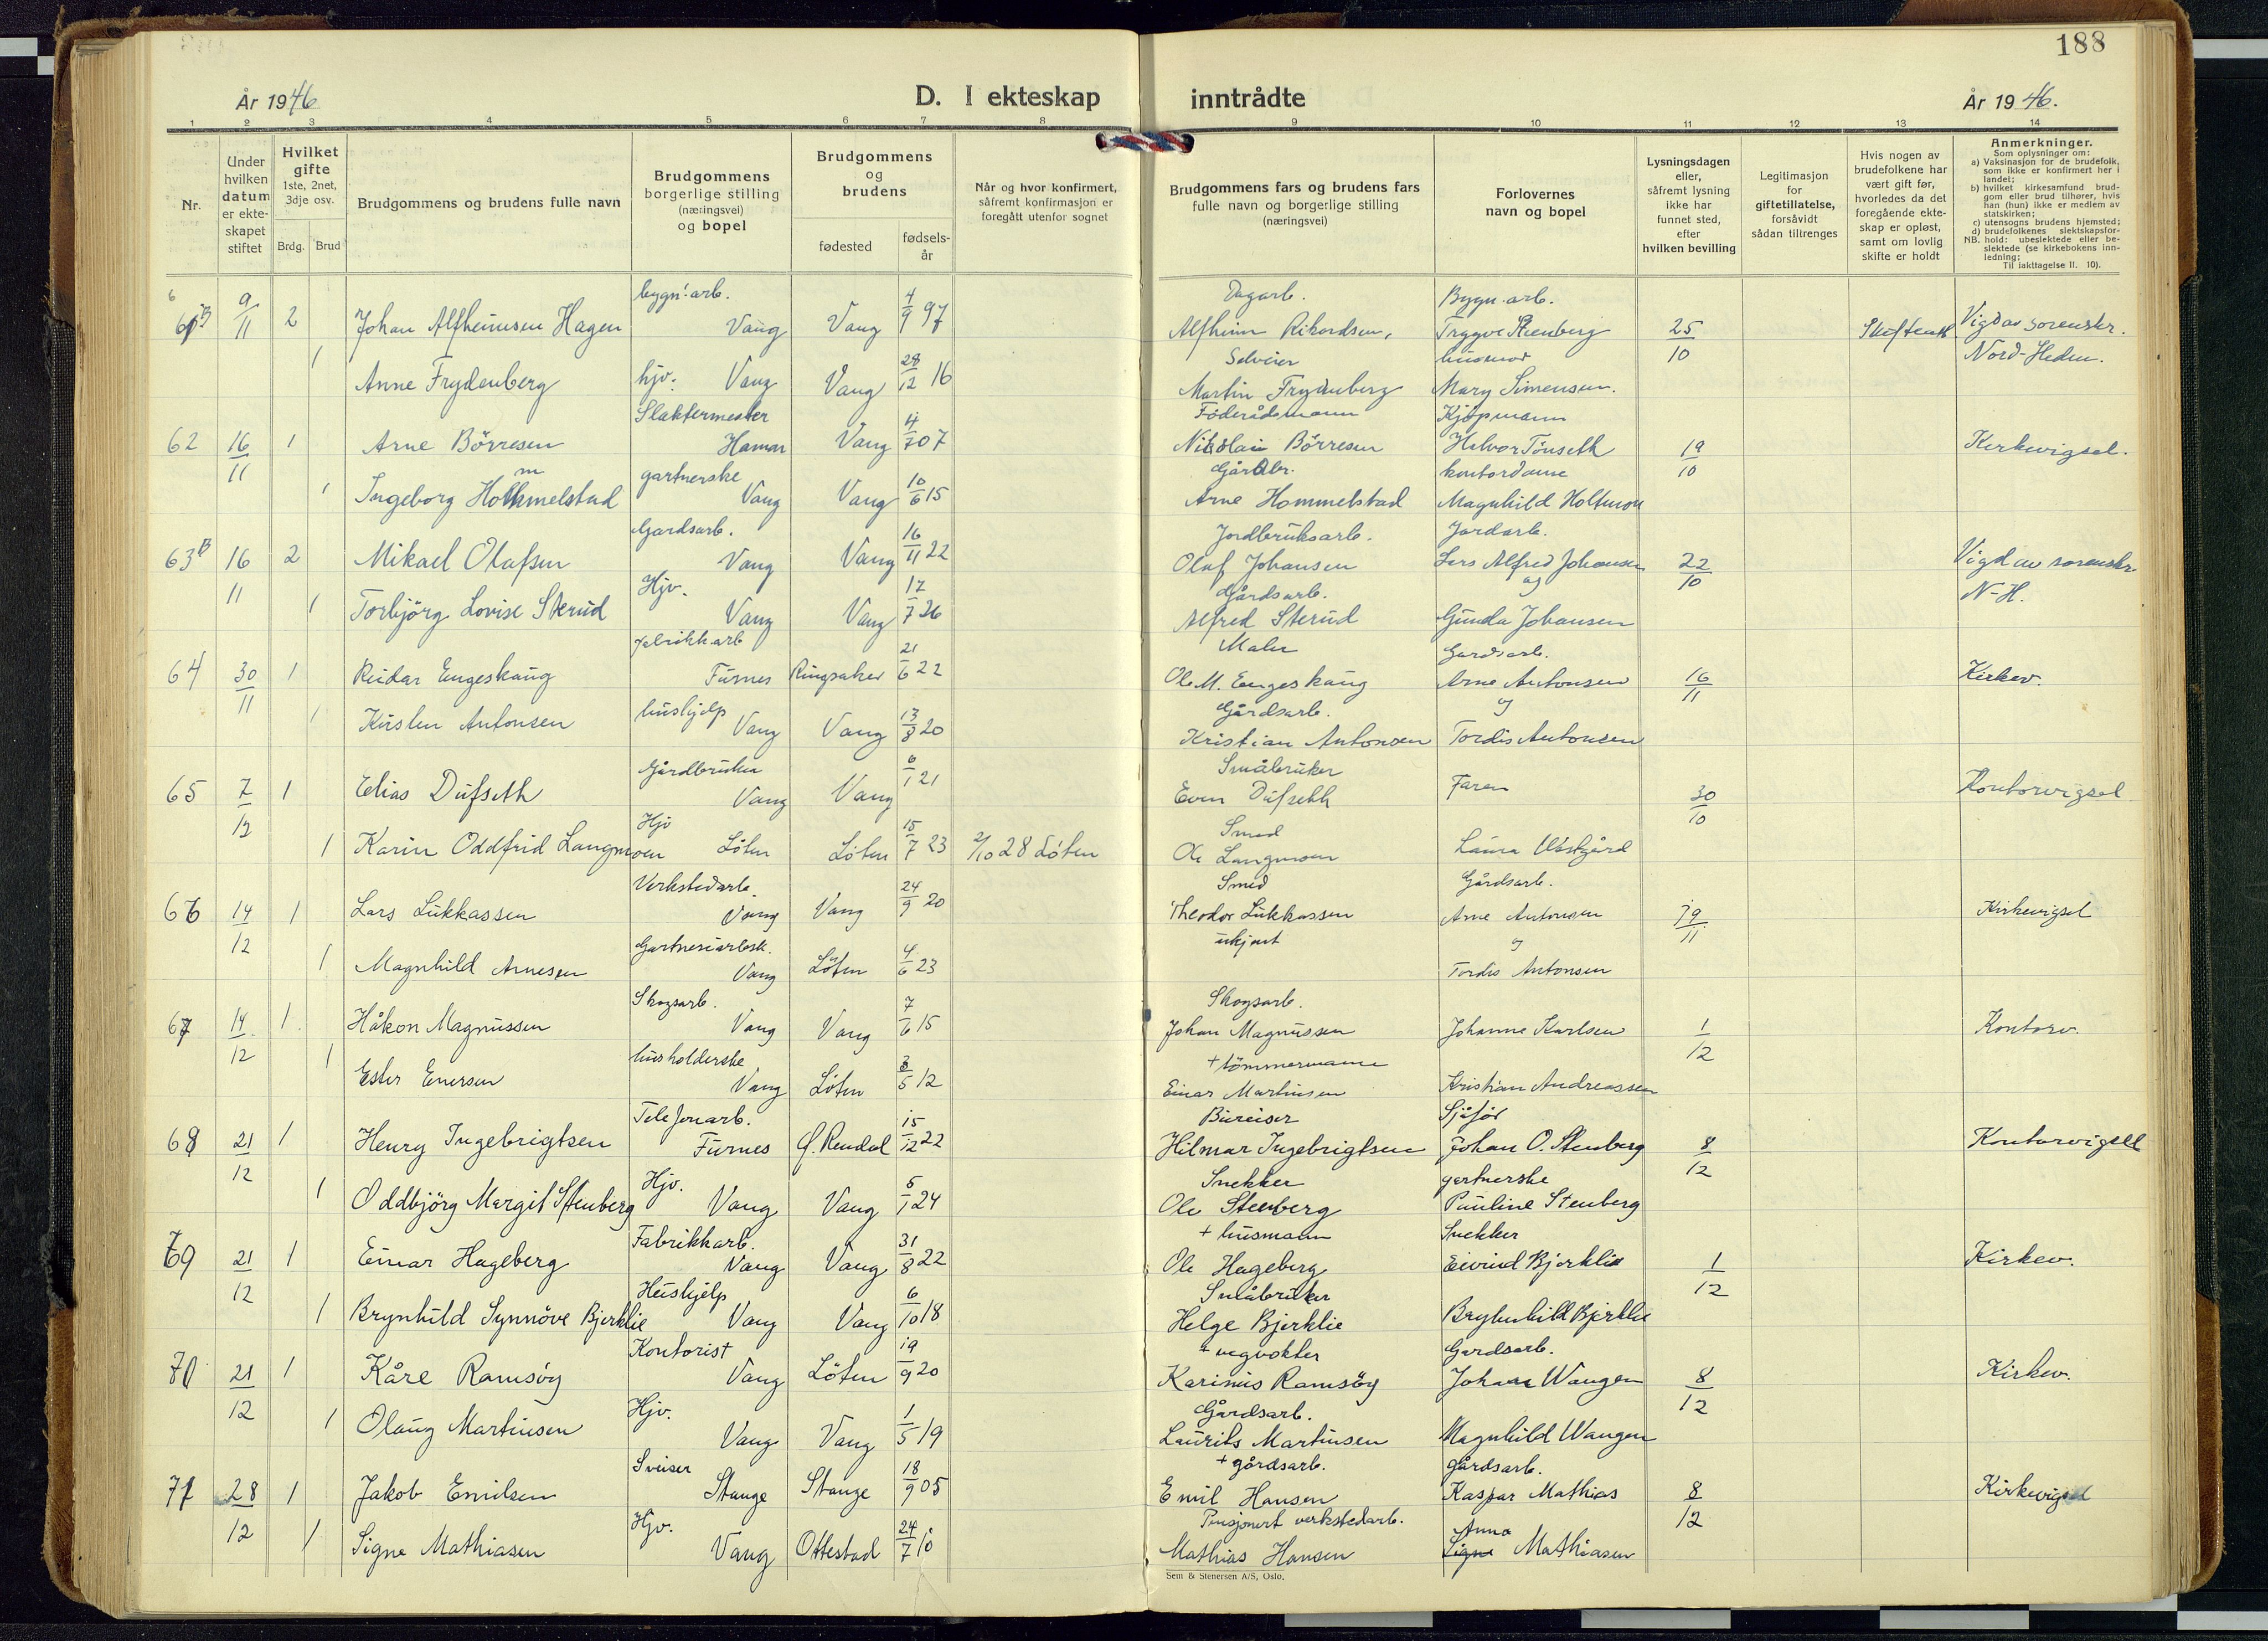 188
År 1946
D. I ekteskap inntrådte
År 1946.
1 2 3 4 5 6 7 8 9 10 11 12 13 14
Nr.
Under hvilken datum er ekteskapet stiftet
Hvilket gifte 1ste, 2net, 3dje osv.
Brdg. Brud
Brudgommens og brudens fulle navn
Brudgommens borgerlige stilling (næringsvei) og bopel
Brudgommens og brudens
fødested
fødselsår
Når og hvor konfirmert, såfremt konfirmasjon er foregått utenfor sognet
Brudgommens fars og brudens fars fulle navn og borgerlige stilling (næringsvei)
Forlovernes navn og bopel
Lysningsdagen eller, såfremt lysning ikke har funnet sted, efter hvilken bevilling
Legitimasjon for giftetillatelse, forsåvidt sådan tiltrenges
Hvis nogen av brudefolkene har vært gift før, hvorledes da det foregående ekteskap er opløst, samt om lovlig skifte er holdt
Anmerkninger.
Som oplysninger om:
a) Vaksinasjon for de brudefolk, som ikke er konfirmert her i landet;
b) hvilket kirkesamfund brudgom eller brud tilhører, hvis han (hun) ikke er medlem av statskirken;
c) utensogns brudens hjemsted;
d) brudefolkenes slektskapsforhold: ubeslektede eller beslektede (se kirkebokens innledning;
NB. Til iakttagelse II. 10).
bygn. arb. 4 Dagarb. Bygn. arb.
61B 9/11 2 Johan Alfheimsen Hagen Vang Vang 4/9 97 Alfheim Rikardsen, Trygve Stenberg 25/10 Vigd av sorenskr.
Selveier husmor Nord-Hedm.
1 Anne Frydenberg hjv. Vang Vang 28/12 16 Martin Frydenberg Mary Simensen.
Slaktermester Föderådsmann Kjøpmann
62 16/11 1 Arne Börresen Hamar Vang 07 Nikolai Börresen Halvor Tönseth 19/10 Kirkevigsel.
gartnerske Gårdbr. kontordame
1 Ingeborg Hommelstad Vang Vang 10/6 15 Arne Hommelstad Magnhild Holtmon
Gardsarb. Jordbruksarb. Jordarb.
63B 16/11 2 Mikael Olafsen Vang Vang 16/11 22 Olaf Johansen Lars Alfred Johansen 22/10 Vigd av sorenskr.
Hjv. Gårdsarb. og N-H.
1 Torbjörg Lovise Sterud Vang Vang 17/7 26 Alfred Sterud Gunda Johansen
fabrikkarb Maler Gardsarb.
64 30/11 1 Reidar Engeskaug Furnes Ringsaker 21/6 22 Ole M. Engeskaug Arne Antonsen 16/11 Kirkev.
hushjelp Gårdsarb. og
1 Kirsten Antonsen Vang Vang 13/8 20 Kristian Antonsen Tordis Antonsen
Gårdbruker Småbruker
65 7/12 1 Elias Dufseth Vang Vang 6/1 21 Even Dufseth Faren 30/10 Kontorvigsel
Hjv Smed
1 Karin Oddfrid Langmoen Löten Löten 15/7 23 2/10 28 Löten Ole Langmoen Laura Västgård
Verkstedarb. Smed Gårdsarb.
66 14/12 1 Lars Lukkassen Vang Vang 24/9 20 Theodor Lukkassen Arne Antonsen 19/11 Kirkevigsel
Gartneriarbsk. ukjent og
1 Magnhild Arnesen Vang Löten 4/6 23 Tordis Antonsen
Skogsarb. Skogsarb.
67 14/12 1 Håkon Magnussen Vang Vang 7/6 15 Johan Magnussen Johanne Karlsen 1/12 Kontorv.
husholderske + tömmermann
1 Ester Enersen Vang Löten 3/5 12 Einar Martinsen Kristian Andreassen
Telefonarb. Bureiser Sjåför
68 21/12 1 Henry Ingebrigtsen Furnes Rendal 15/12 22 Hilmar Ingebrigtsen Johan O. Stenberg 8/12 Kontorvigsel
Hjv. Snekker gartnerske
1 Oddbjörg Margit Stenberg Vang Vang 5/1 24 Ole Stenberg Pauline Stenberg
Fabrikkarb. + husmann Snekker
69 21/12 1 Einar Hageberg Vang Vang 31/8 22 Ole Hageberg Eivind Bjerklie 1/12 Kirkev.
Hushjelp Småbruker
1 Brynhild Synnöve Bjerklie Vang Vang 6/10 18 Helge Bjerklie Brynhild Bjerklie
Kontorist + vegvokter Gardsarb.
70 21/12 1 Kåre Ramsöy Vang Löten 19/9 20 Karinus Ramsöy Johan Wangen 8/12 Kirkev.
Hjv. Gårdsarb.
1 Olaug Martinsen Vang Vang 1/5 19 Laurits Martinsen Magnhild Wangen
Sveiser + gårdsarb. gårdsarb.
71 28/12 1 Jakob Emilsen Stange Stange 18/9 05 Emil Hansen Kaspar Mathias 8/12 Kirkevigsel
Hjv. Pensjonert verkstedarb. Anna
1 Signe Mathiasen Vang Ottestad 24/7 10 Mathias Hansen Signe Mathiasen
Sem & Stenersen A/S, Oslo.